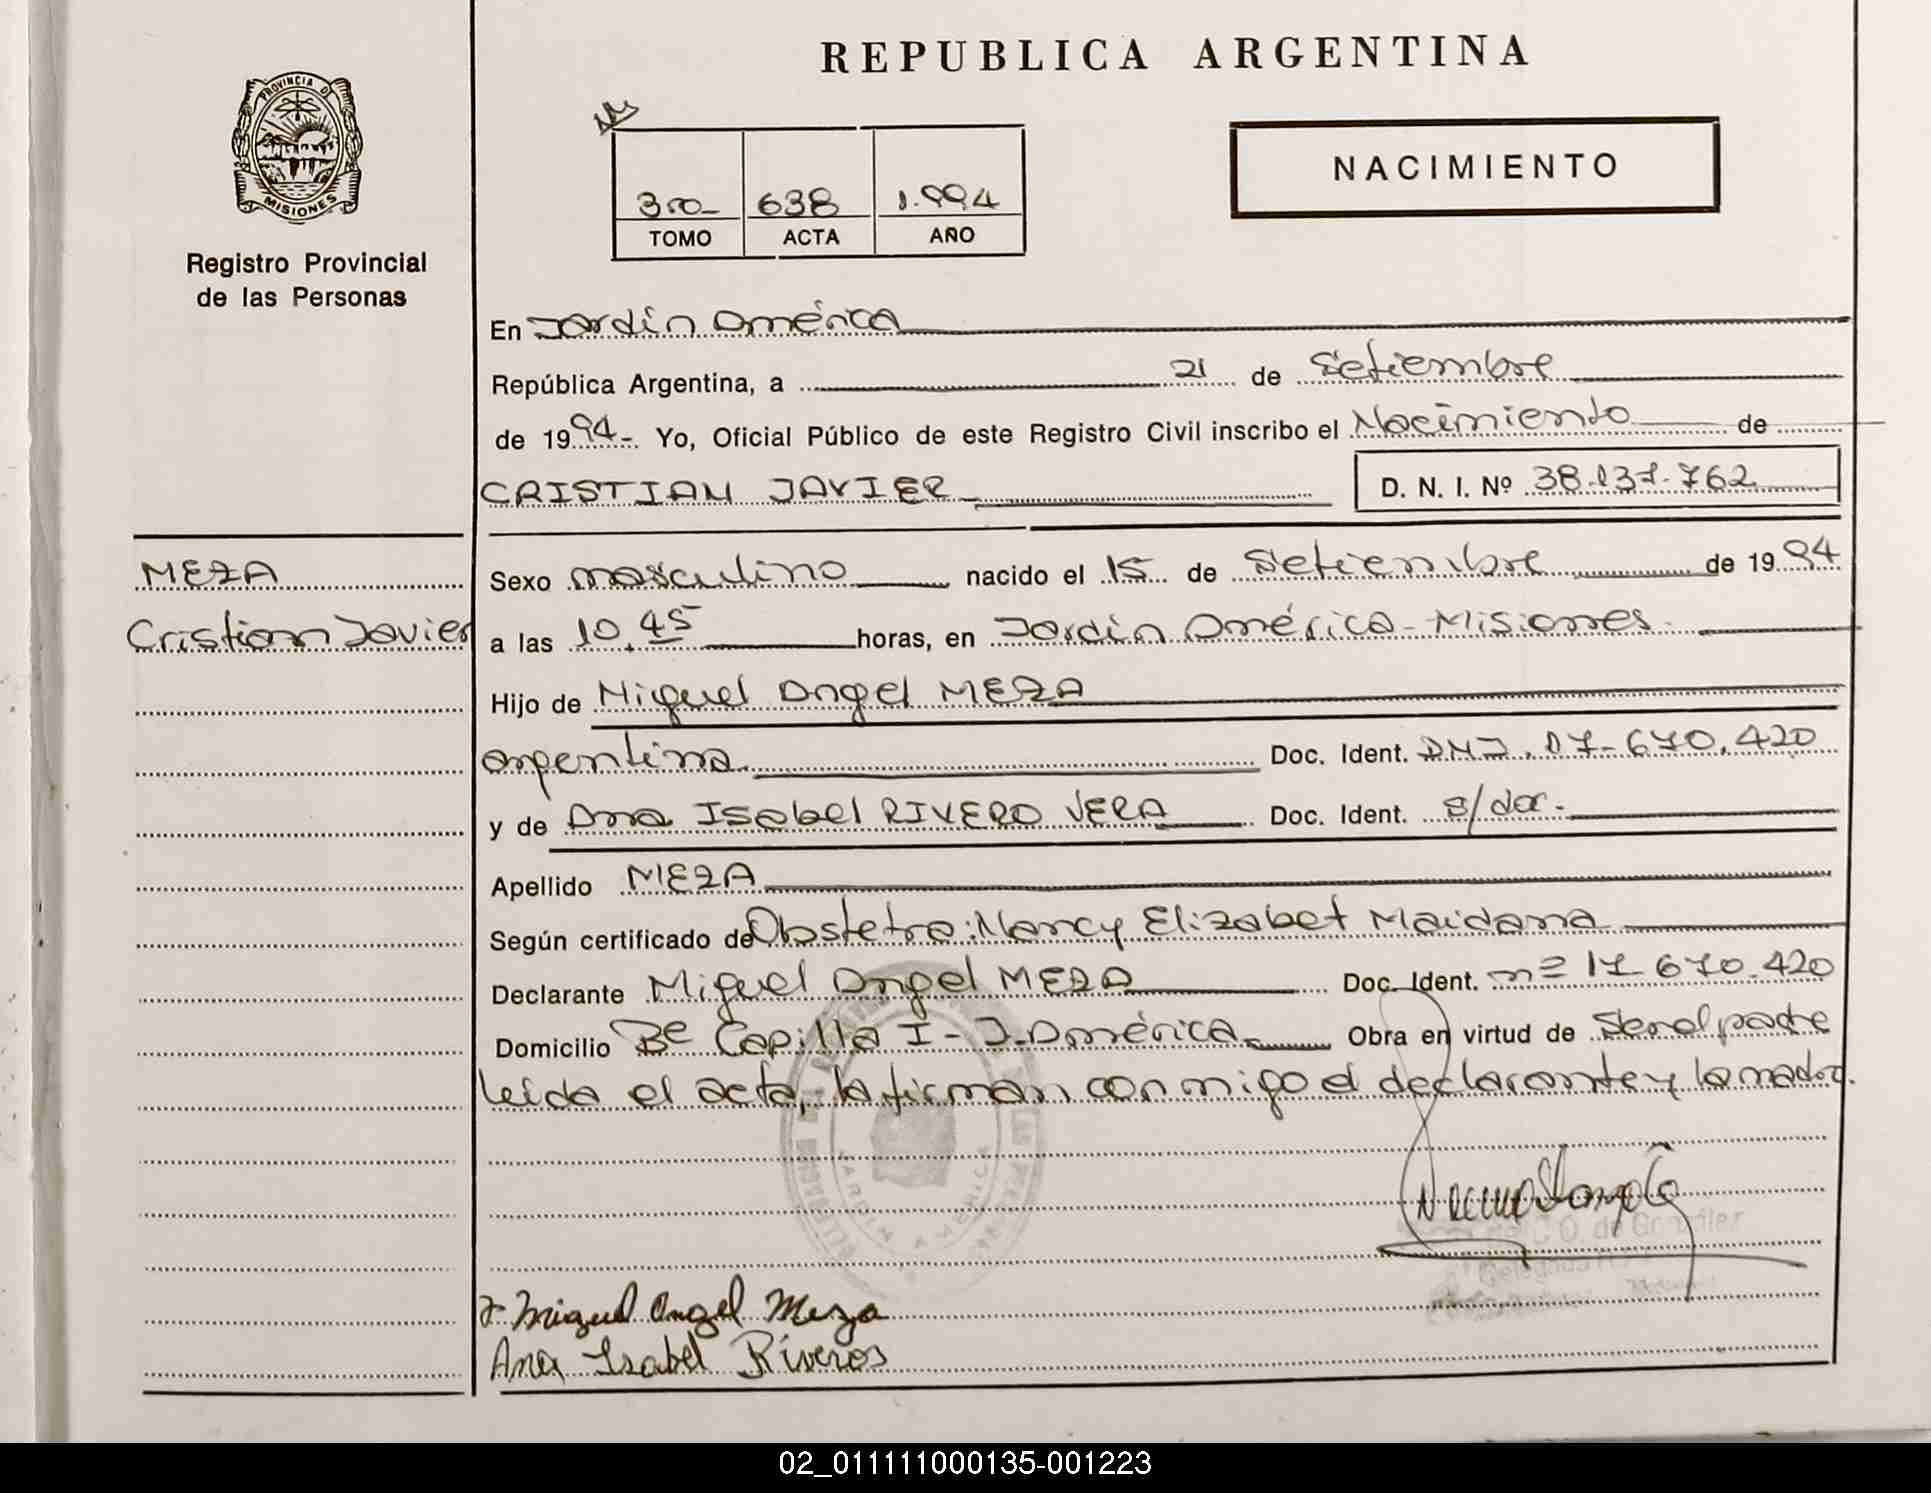 REPUBLICA ARGENTINA
PROVINCIA DE
MISIONES
Registro Provincial
de las Personas
3ro- 638 1.994
TOMO ACTA AÑO
NACIMIENTO
En Jardín América
República Argentina, a 21 de Setiembre
de 1994-. Yo, Oficial Público de este Registro Civil inscribo el Nacimiento de
CRISTIAN JAVIER D. N. I. Nº 38.137.762
MEZA
Cristian Javier
Sexo masculino nacido el 15 de Setiembre de 1994
a las 10.45 horas, en Jardín América-Misiones.
Hijo de Miguel Angel MEZA
argentina. Doc. Ident. DNI. 17-670.420
y de Ana Isabel RIVERO VERA Doc. Ident. s/doc.
Apellido MEZA
Según certificado de Obstetra: Nancy Elizabet Maidana
Declarante Miguel Angel MEZA Doc. Ident. nº 17 670.420
Domicilio Bº Capilla I - J. América. Obra en virtud de Ser el padre
Leída el acta, la firman conmigo el declarante y la madre.
JARDIN AMERICA
C. O. de González
Delegada
Miguel Angel Meza
Ana Isabel Riveros
02_011111000135-001223